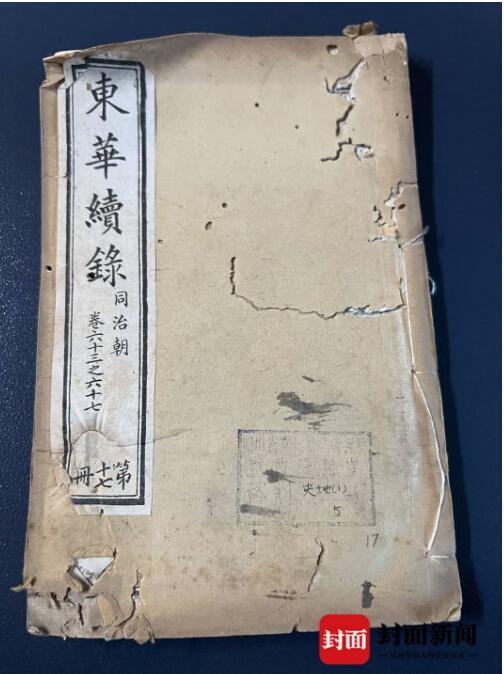 東華續錄
同治朝
卷六十三之六十七
第十七冊
史地(1)
5
17
封面
封面新闻